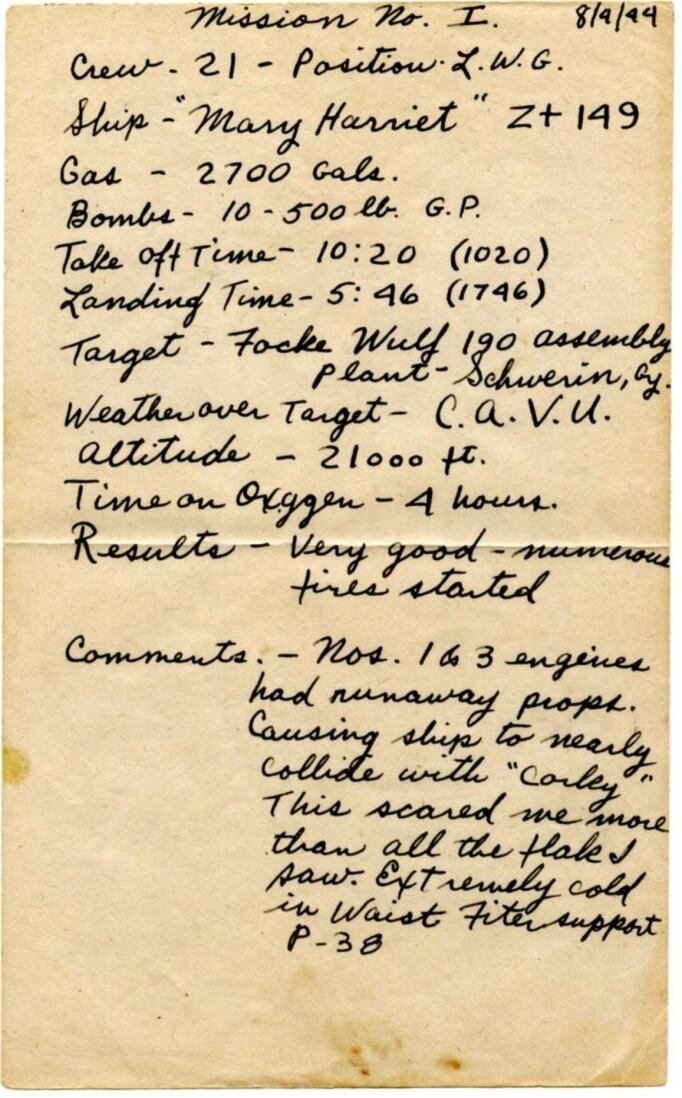 Mission No. I. 8/4/44
Crew - 21 - Position - L.W.G.
Ship - "Mary Harriet" Z+ 149
Gas - 2700 Gals.
Bombs - 10 - 500 lb. G.P.
Take off Time - 10:20 (1020)
Landing Time - 5:46 (1746)
Target - Focke Wulf 190 assembly
Plant - Schwerin, Gy.
Weather over Target - C.A.V.U.
Altitude - 21000 ft.
Time on Oxygen - 4 hours.
Results - Very good - numerous
fires started
Comments. - Nos. 1 & 3 engines
had runaway props.
Causing ship to nearly
collide with "Corky"
This scared me more
than all the flak I
saw. Extremely cold
in Waist Fiter support
P-38